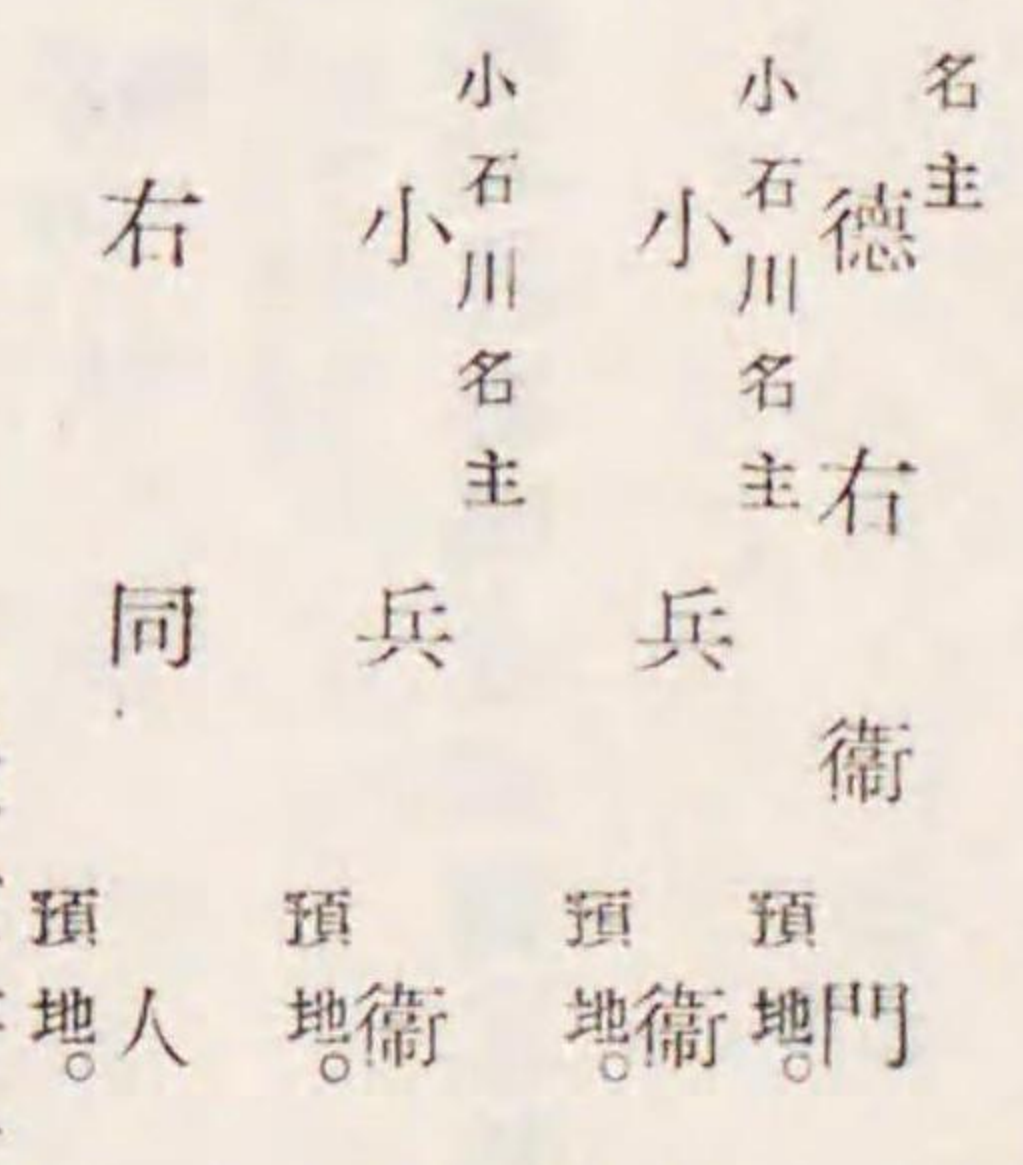 名主
德右衞門
預地。
小石川名主
小兵衞
預地。
小石川名主
小兵衞
預地。
右同人
預地。